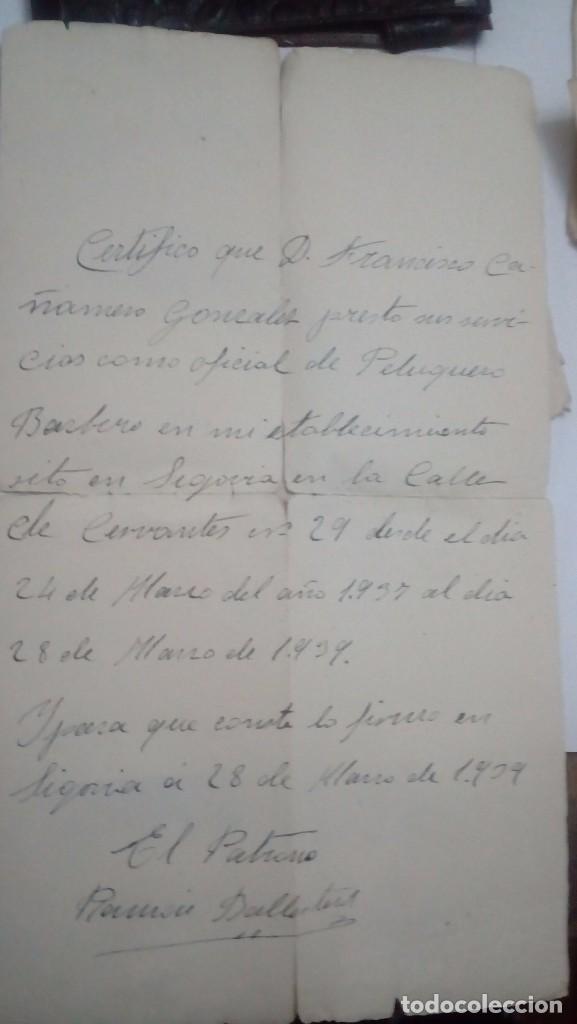 Certifico que D. Francisco Ca-
ñamero Gonzalez presto sus servi-
cios como oficial de Peluquero
Barbero en mi establecimiento
sito en Segovia en la Calle
de Cervantes nº 29 desde el dia
24 de Marzo del año 1.937 al dia
28 de Marzo de 1.939.
Y para que conste lo firmo en
Segovia a 28 de Marzo de 1.939
El Patrono
Ramón
todocoleccion
todocoleccion.net